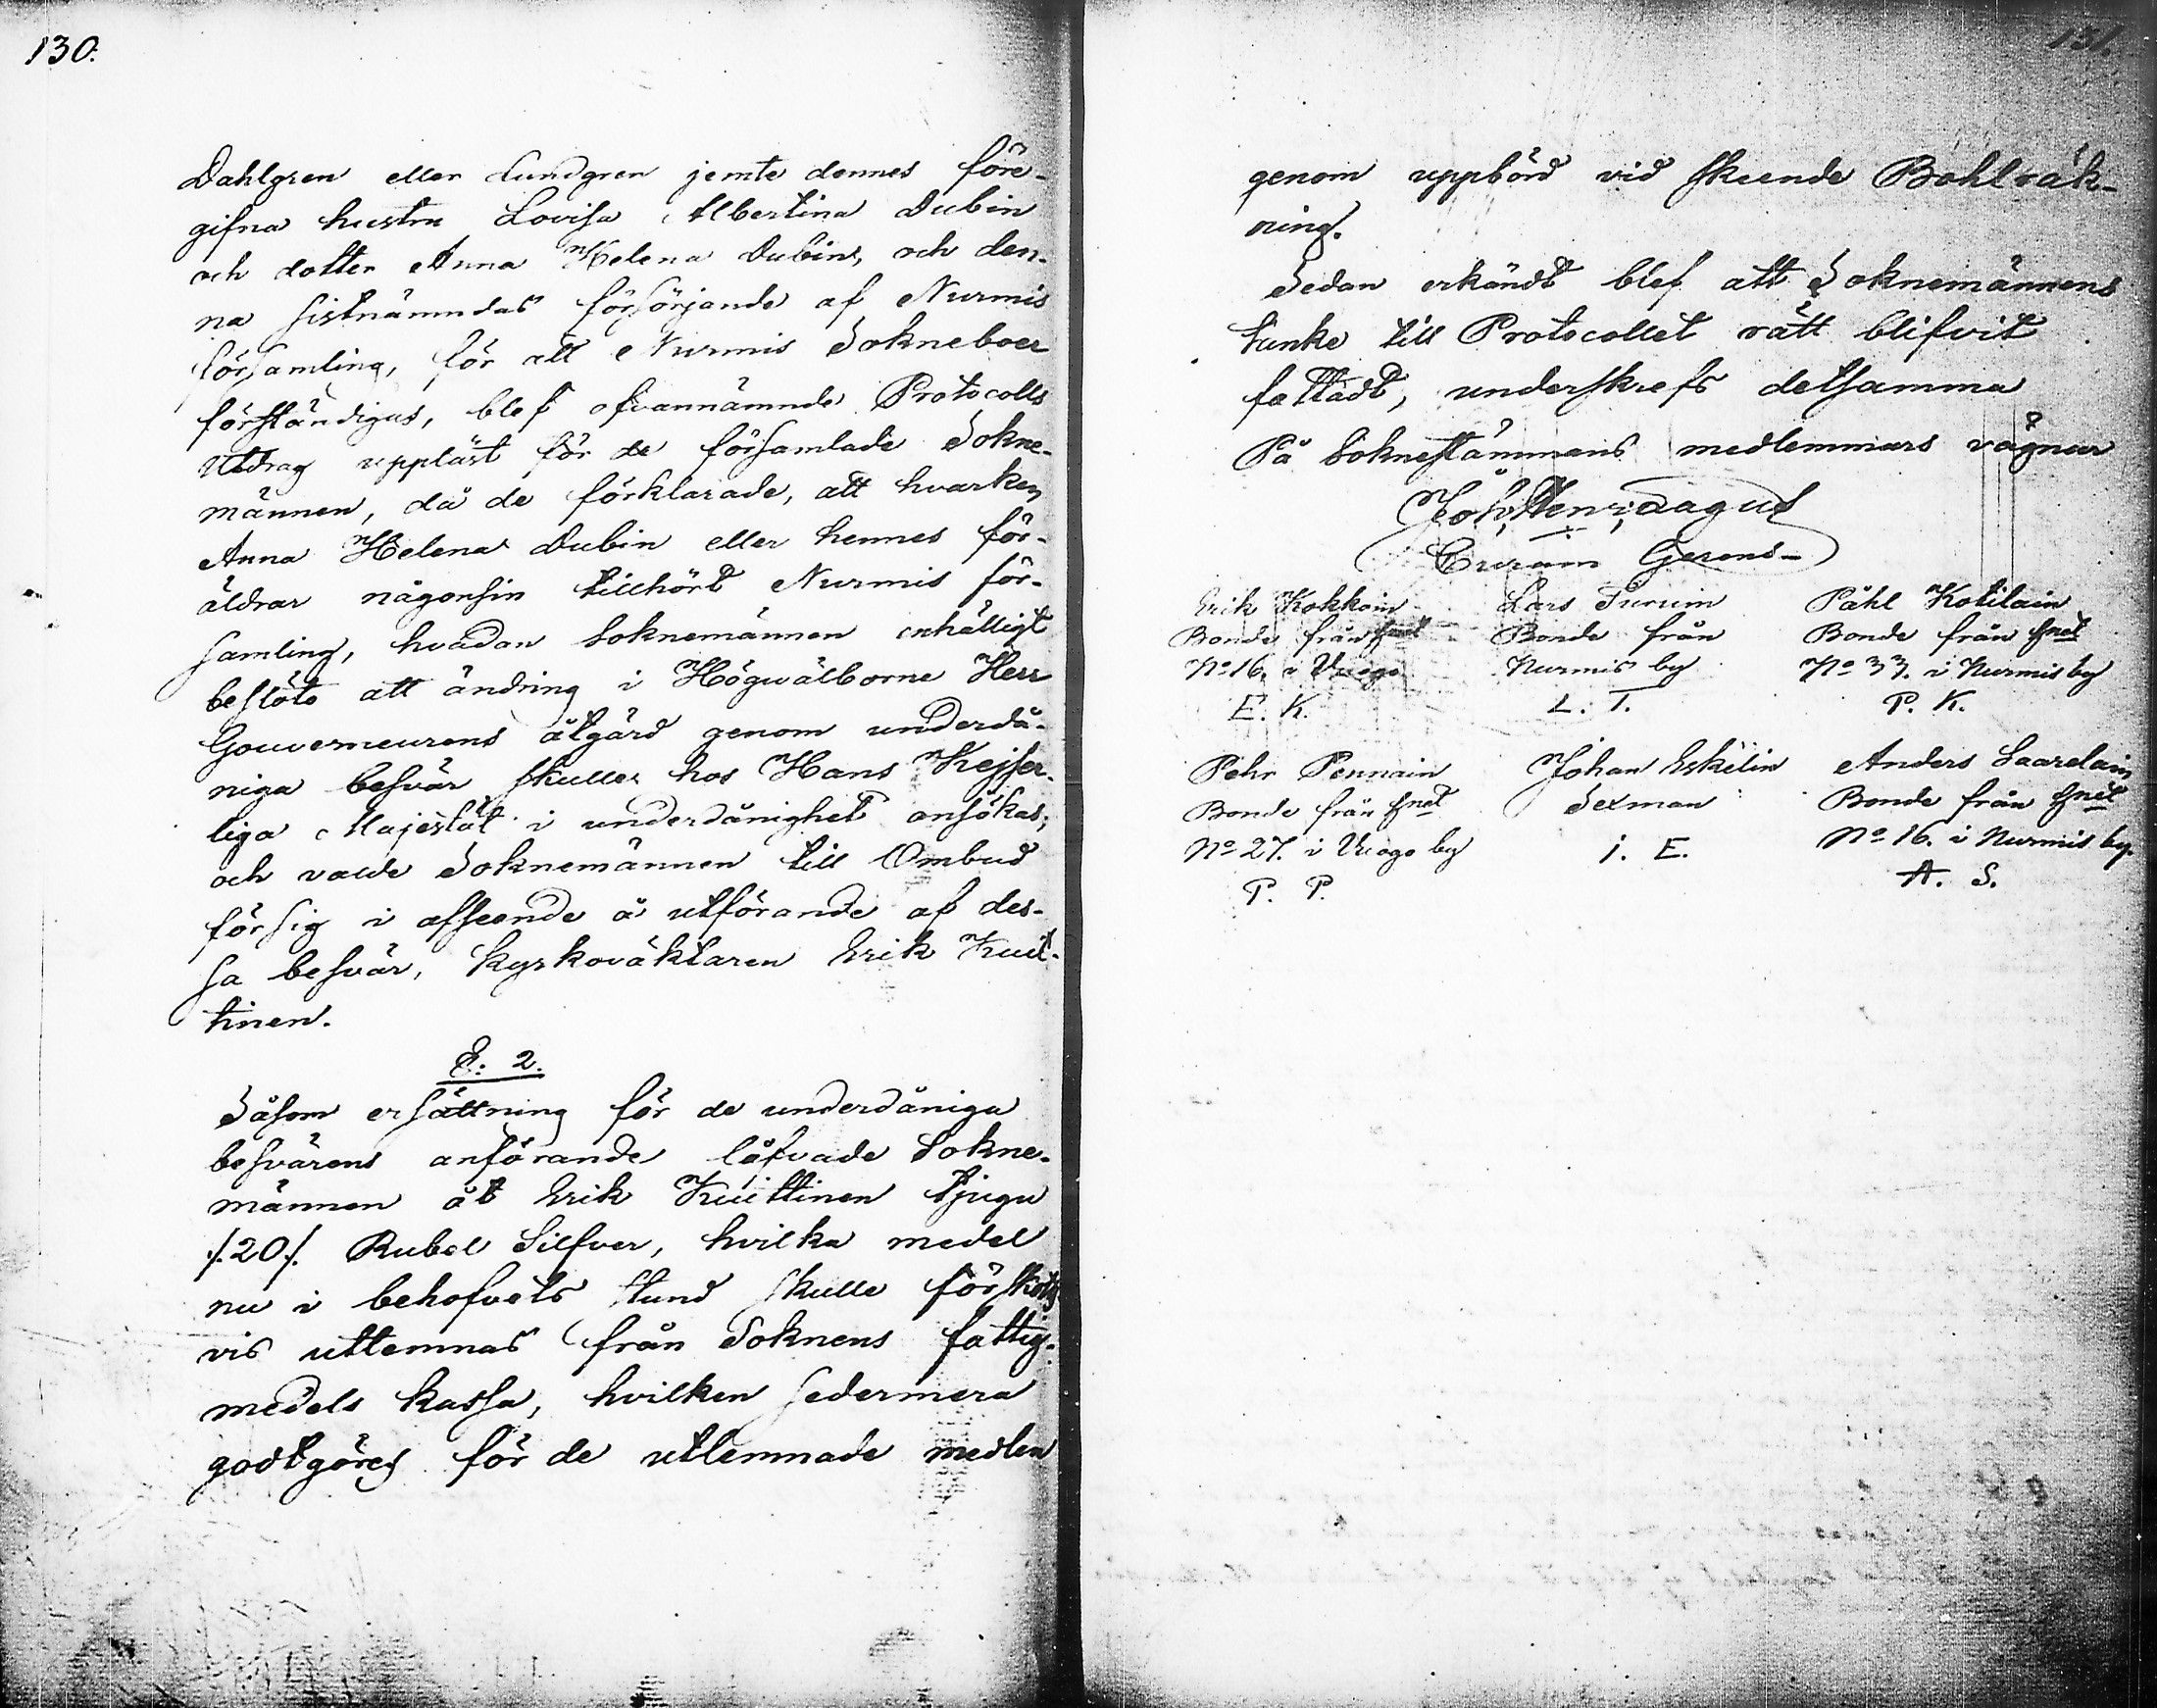 130.
Dahlgren eller Lundgren jemte dennes före-
gifna hustru Lovisa Albertina Dubin
och dotter Anna Helena Dubin, och den-
na sistnämndas försörjande af Nurmis
församling, för att Nurmis Sokneboer
förständigas, blef ofvannämnde Protocolls
Utdrag uppläst för de församlade Sokne-
männen, då de förklarade, att hvarken
Anna Helena Dubin eller hennes för-
äldrar någonsin tillhört Nurmis för-
samling, hvadan Soknemännen enhälligt
beslöto att ändring i Högwälborne Herr
Gouverneurens åtgärd genom underdå-
niga besvär skulle hos Hans Kejser-
liga Majestät i underdånighet ansökas;
och valde Soknemännen till Ombud
för sig i afseende å utförande af des-
sa besvär, Kyrkoväktaren Erik Kuit-
tinen.
§. 2.
Såsom ersättning för de underdåniga
besvärens anförande låfvade Sokne-
männen åt Erik Kuittinen tjugu
/.20/. Rubel Silfver, hvilka medel
nu i behofvets stund skulle förskotts
vis utlemnas från Soknens fattig-
medels kassa, hvilken sedermera
godtgöres för de utlemnade medlen
131.
genom uppbörd vid skeende Bohlräk-
ning.
Sedan erkändt blef att Soknemännens
tanke till Protocollet rätt blifvit
fattadt, underskrefs detsamma
På Soknestämmans medlemmars vägnar
Joh. Henr.
Curam Gerens
Erik Kokkoin Lars Turuin Påhl Kotilain
Bonde från hnet Bonde från Bonde från hnet
No 16, i Nurmis by No 33. i Nurmis by
E. K. L. T. P. K.
Pehr Pennain Johan Eskelin Anders Saarelain
Bonde från hnet Sexman Bonde från hnet
No 27. i by No 16. i Nurmis by.
P. P. J. E. A. S.